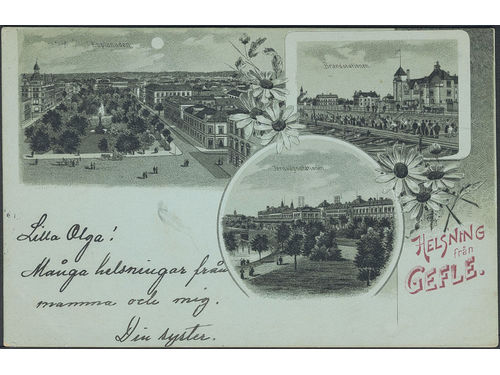 Esplanaden.
Brandstationen.
Jernvägsstationen.
HELSNING
från
GEFLE.
Lilla Olga!
Många helsningar från
mamma och mig.
Din syster.